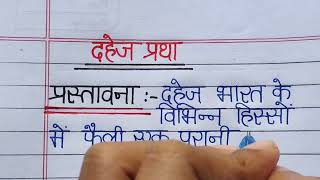 दहेज प्रथा
प्रस्तावना :- दहेज भारत के
विभिन्न हिस्सों
में फैली एक पुरानी